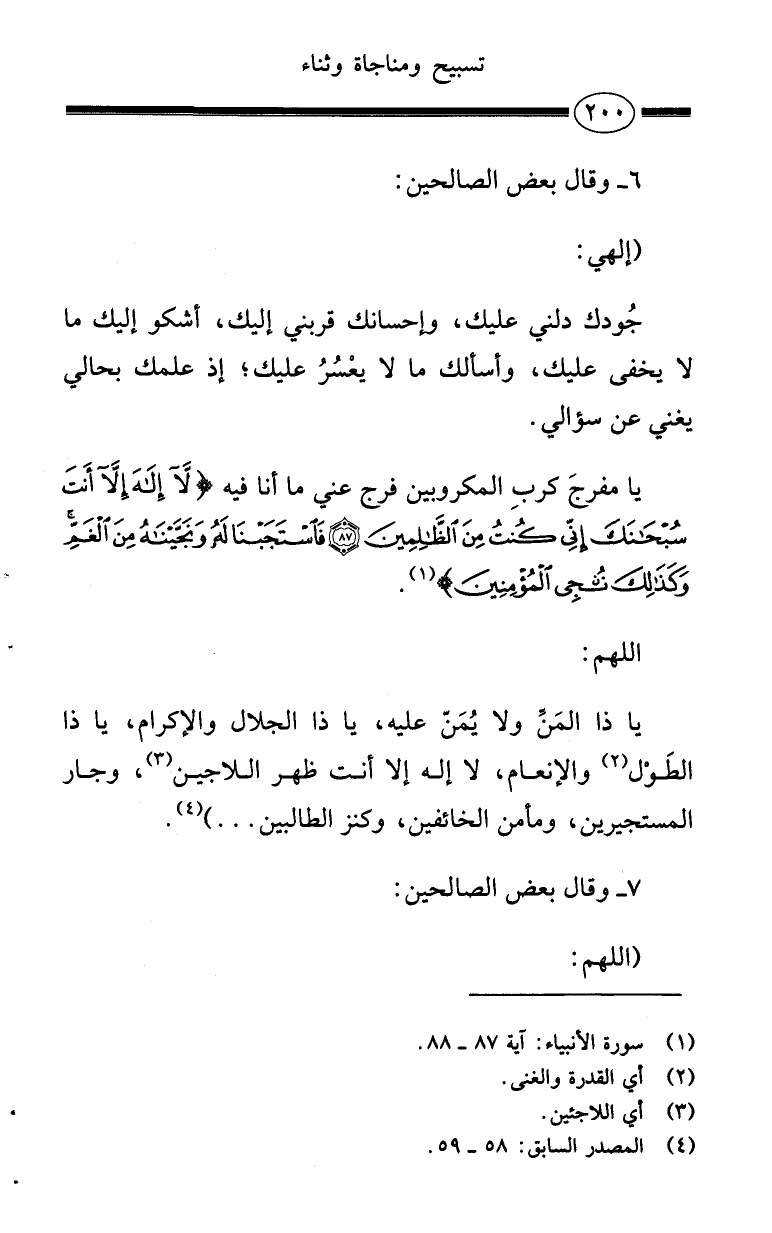 تسبيح ومناجاة وثناء
٢٠٠
٦ـ وقال بعض الصالحين:
(إلهي:
جُودك دلني عليك، وإحسانك قربني إليك، أشكو إليك ما
لا يخفى عليك، وأسألك ما لا يعْسُرُ عليك؛ إذ علمك بحالي
يغني عن سؤالي.
يا مفرجَ كربِ المكروبين فرج عني ما أنا فيه ﴿لَّآ إِلَٰهَ إِلَّآ أَنتَ
سُبْحَٰنَكَ إِنِّي كُنتُ مِنَ ٱلظَّٰلِمِينَ ٨٧ فَٱسْتَجَبْنَا لَهُۥ وَنَجَّيْنَٰهُ مِنَ ٱلْغَمِّ ۚ
وَكَذَٰلِكَ نُـۨجِي ٱلْمُؤْمِنِينَ﴾(١).
اللهم:
يا ذا المَنِّ ولا يُمَنّ عليه، يا ذا الجلال والإكرام، يا ذا
الطَوْل(٢) والإنعام، لا إله إلا أنت ظهر اللاجين(٣)، وجار
المستجيرين، ومأمن الخائفين، وكنز الطالبين...)(٤).
٧ـ وقال بعض الصالحين:
(اللهم:
(١) سورة الأنبياء: آية ٨٧ ـ ٨٨.
(٢) أي القدرة والغنى.
(٣) أي اللاجئين.
(٤) المصدر السابق: ٥٨ ـ ٥٩.